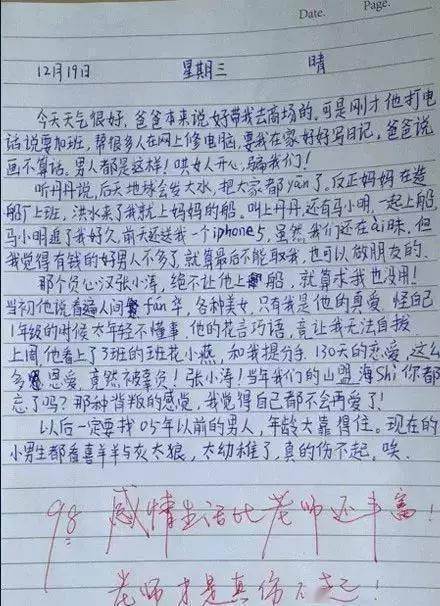 Date. Page.
12月19日 星期三 晴
今天天气很好,爸爸本来说好带我去商场的,可是刚才他打电
话说要加班,帮很多人在网上修电脑,要我在家好好写日记,爸爸说
画不算话。男人都是这样!哄女人开心,骗我们!
听丹丹说,后天地球会发大水,把大家都yān了。反正妈妈在造
船厂上班,洪水来了我就上妈妈的船。叫上丹丹,还有马小明,一起上船,
马小明追了我好久,前天还送我一个iphone5,虽然我们还在ài昧,但
我觉得有钱的好男人不多了,就算最后不能取我,也可以做朋友的.
那个负心汉张小涛,绝不让他上船,就算求我也没用!
当初他说看遍人间fán华,各种美女,只有我是他的真爱,怪自己
1年级的时候太年轻不懂事,他的花言巧语,竟让我无法自拔
上周他看上了3班的班花小燕,和我提分手,130天的恋爱,这么
多恩爱,竟然被辜负!张小涛!当年我们的山盟海Shi你都
忘了吗?那种背叛的感觉,我觉得自己都不会再爱了!
以后一定要找05年以前的男人,年龄大靠得住。现在的
小男生都看喜羊羊与灰太狼,太幼稚了,真的伤不起,唉.
98 感情生活比老师还丰富!
老师才是真伤不起!